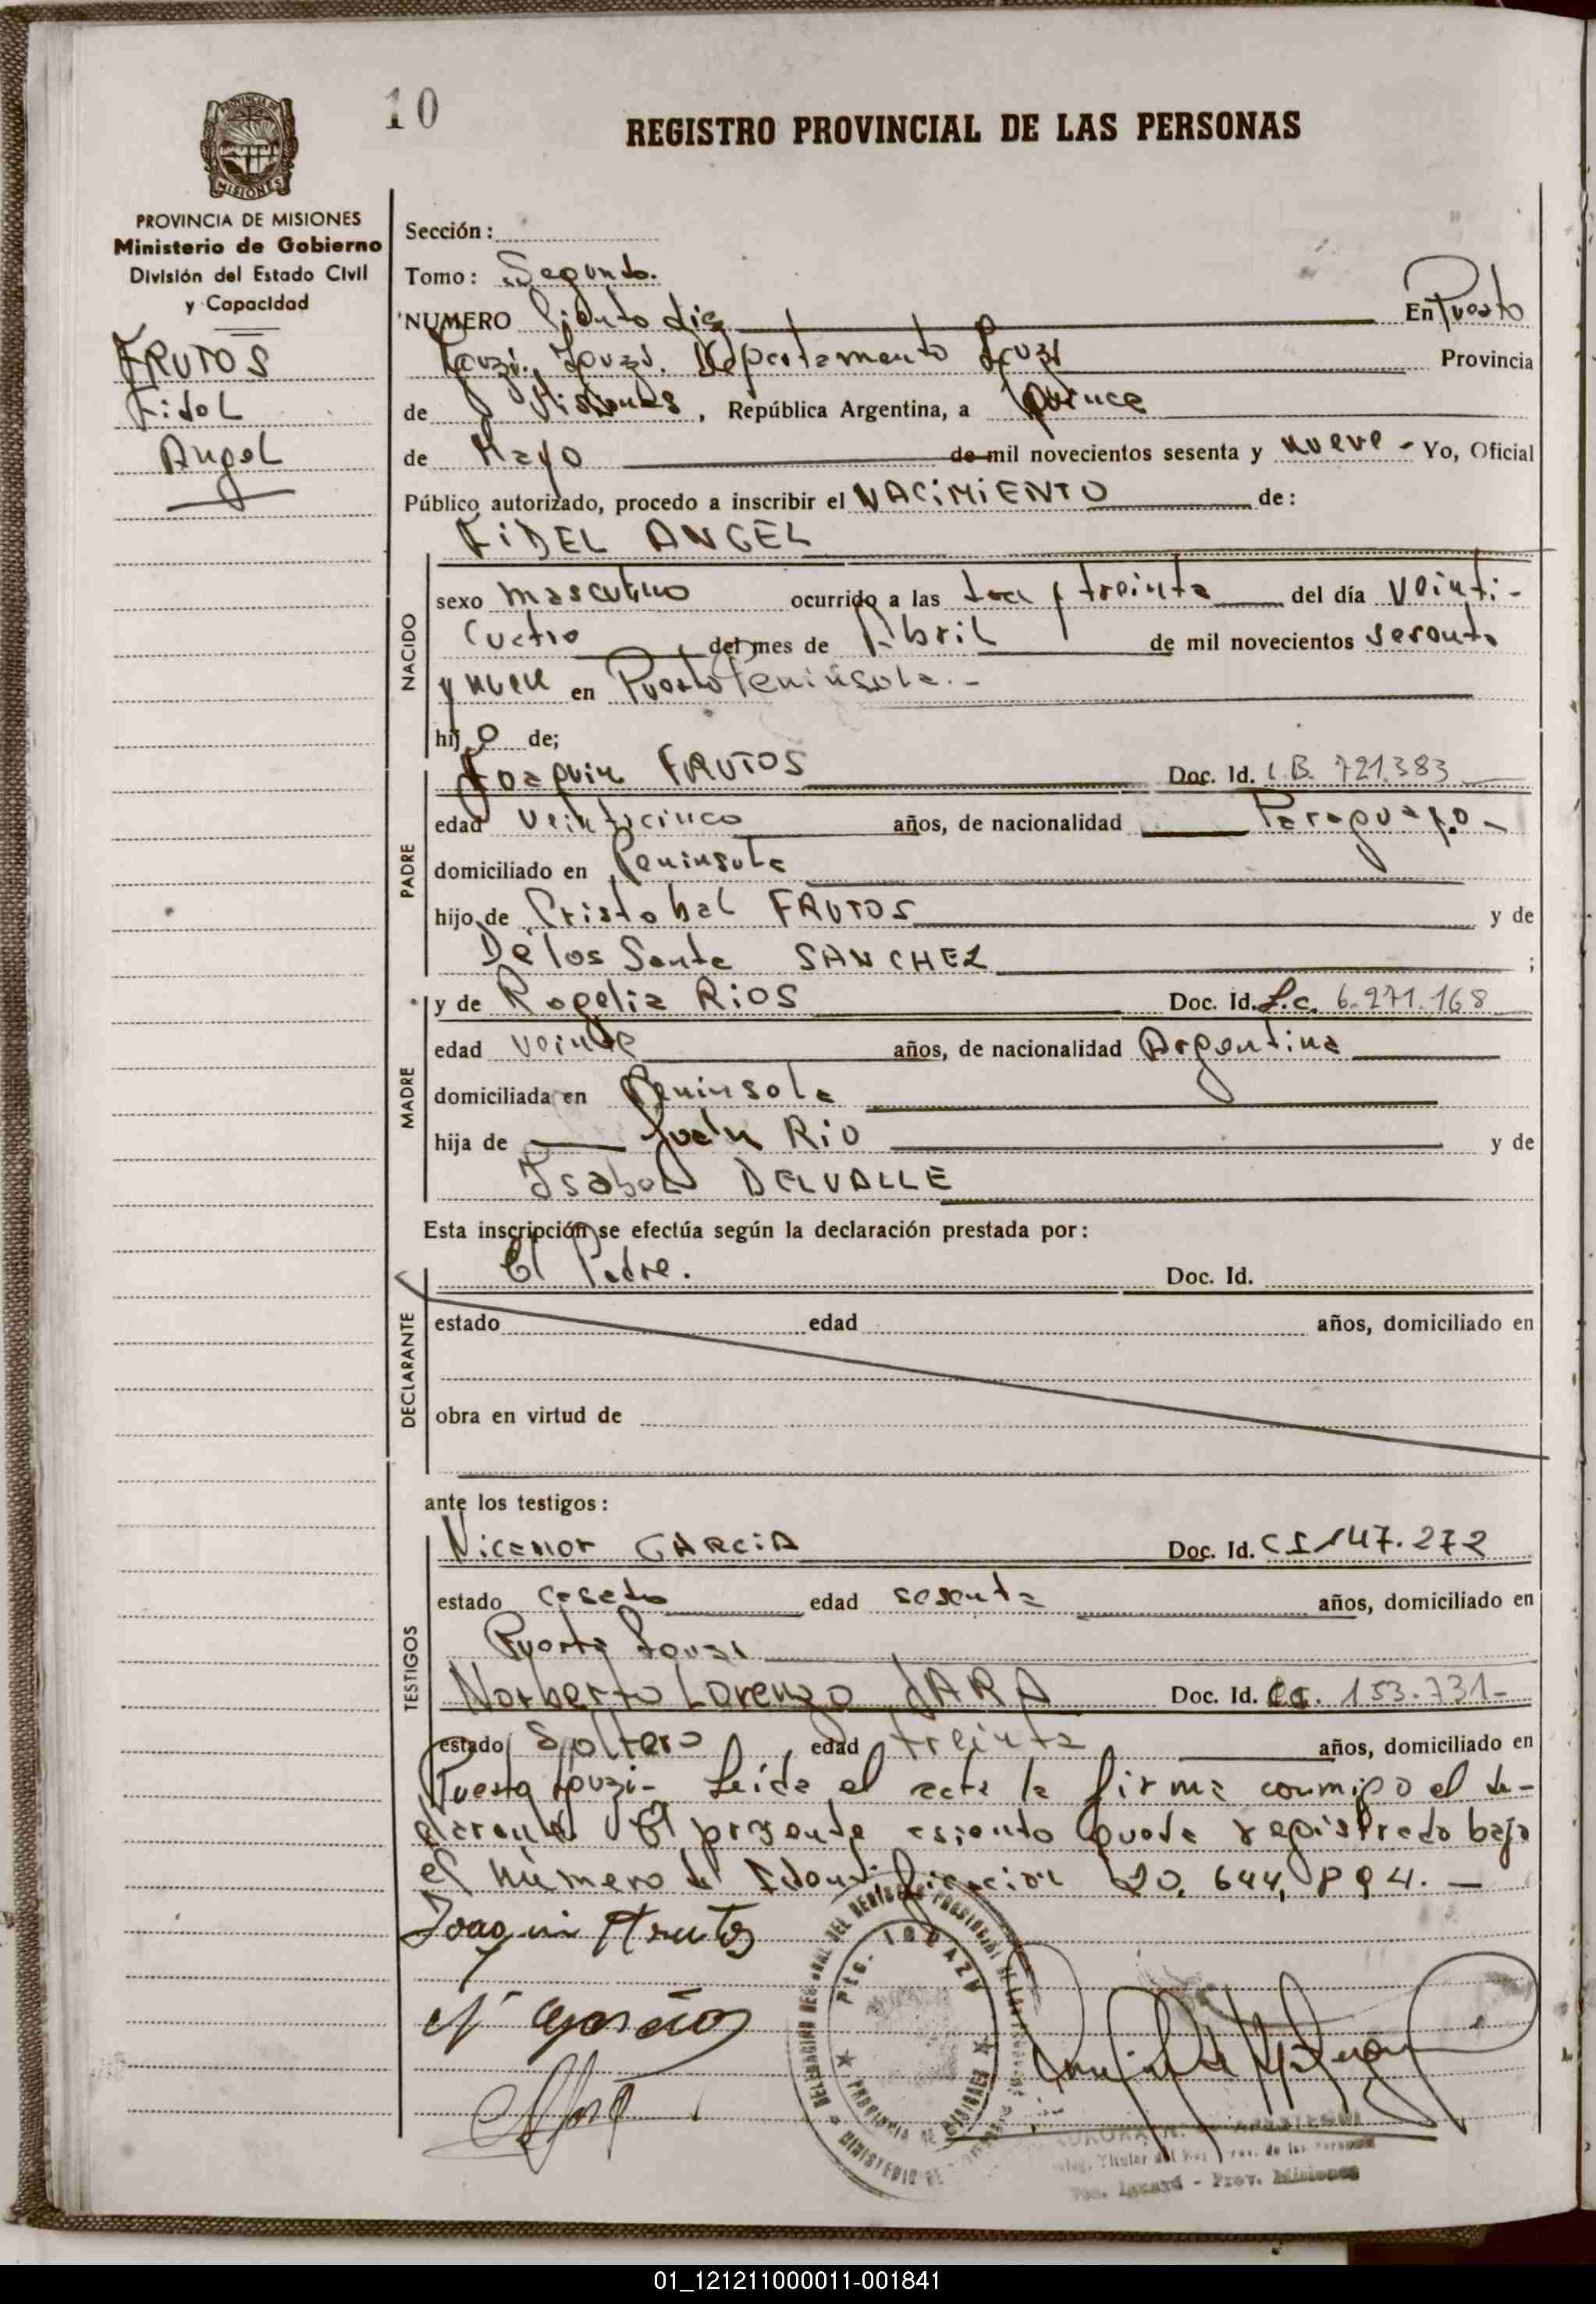 10
REGISTRO PROVINCIAL DE LAS PERSONAS
PROVINCIA DE MISIONES
Ministerio de Gobierno
División del Estado Civil
y Capacidad
FRUTOS
Fidel
Angel
Sección:
Tomo: Segundo.
NUMERO Ciento diez En Puerto
Departamento Provincia
de Misiones, República Argentina, a quince
de Mayo de mil novecientos sesenta y nueve - Yo, Oficial
Público autorizado, procedo a inscribir el NACIMIENTO de:
FIDEL ANGEL
NACIDO
sexo masculino ocurrido a las y treinta del día Veinti-
cuatro del mes de Abril de mil novecientos sesenta
y nueve en Puerto Peninsula.-
hijo de;
PADRE
Joaquin FRUTOS Doc. Id. C.B. 721.383
edad veinticinco años, de nacionalidad Paraguayo-
domiciliado en Peninsula
hijo de Cristobal FRUTOS y de
De los Santa SANCHEZ ;
MADRE
y de Rogelia RIOS Doc. Id. L.C. 6.271.168
edad veinte años, de nacionalidad Argentina
domiciliada en Peninsula
hija de Juan RIO y de
Isabel DELVALLE
Esta inscripción se efectúa según la declaración prestada por:
DECLARANTE
El Padre. Doc. Id.
estado edad años, domiciliado en
obra en virtud de
ante los testigos:
TESTIGOS
Nicanor GARCIA Doc. Id. CI 147.272
estado casado edad sesenta años, domiciliado en
Puerto
Norberto Lorenzo JARA Doc. Id. 153.731-
estado Soltero edad treinta años, domiciliado en
Puerto Leida el acta la firma conmigo el de-
clarante El presente asiento queda registrado bajo
el número de Identificacion 20.644.894.-
Joaquin Frutos
Pto. IGUAZU
PROVINCIA DE MISIONES
Pto. Iguazú - Prov. Misiones
01_121211000011-001841